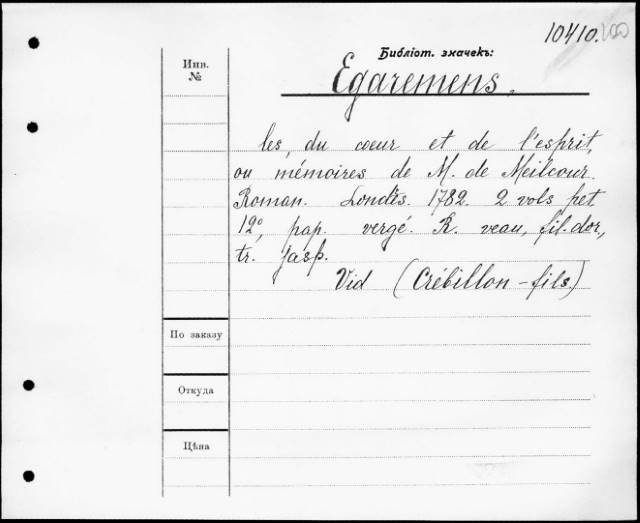 10410.
Библіот. значекъ:
Инв.
№
Egaremens.
les, du coeur et de l'esprit,
ou mémoires de M. de Meilcour.
Roman. Londrs. 1782. 2 vols pet
12°, pap. vergé. R. veau, fil. d'or,
tr. jasp.
Vid (Crébillon-fils.)
По заказу
Откуда
Цѣна